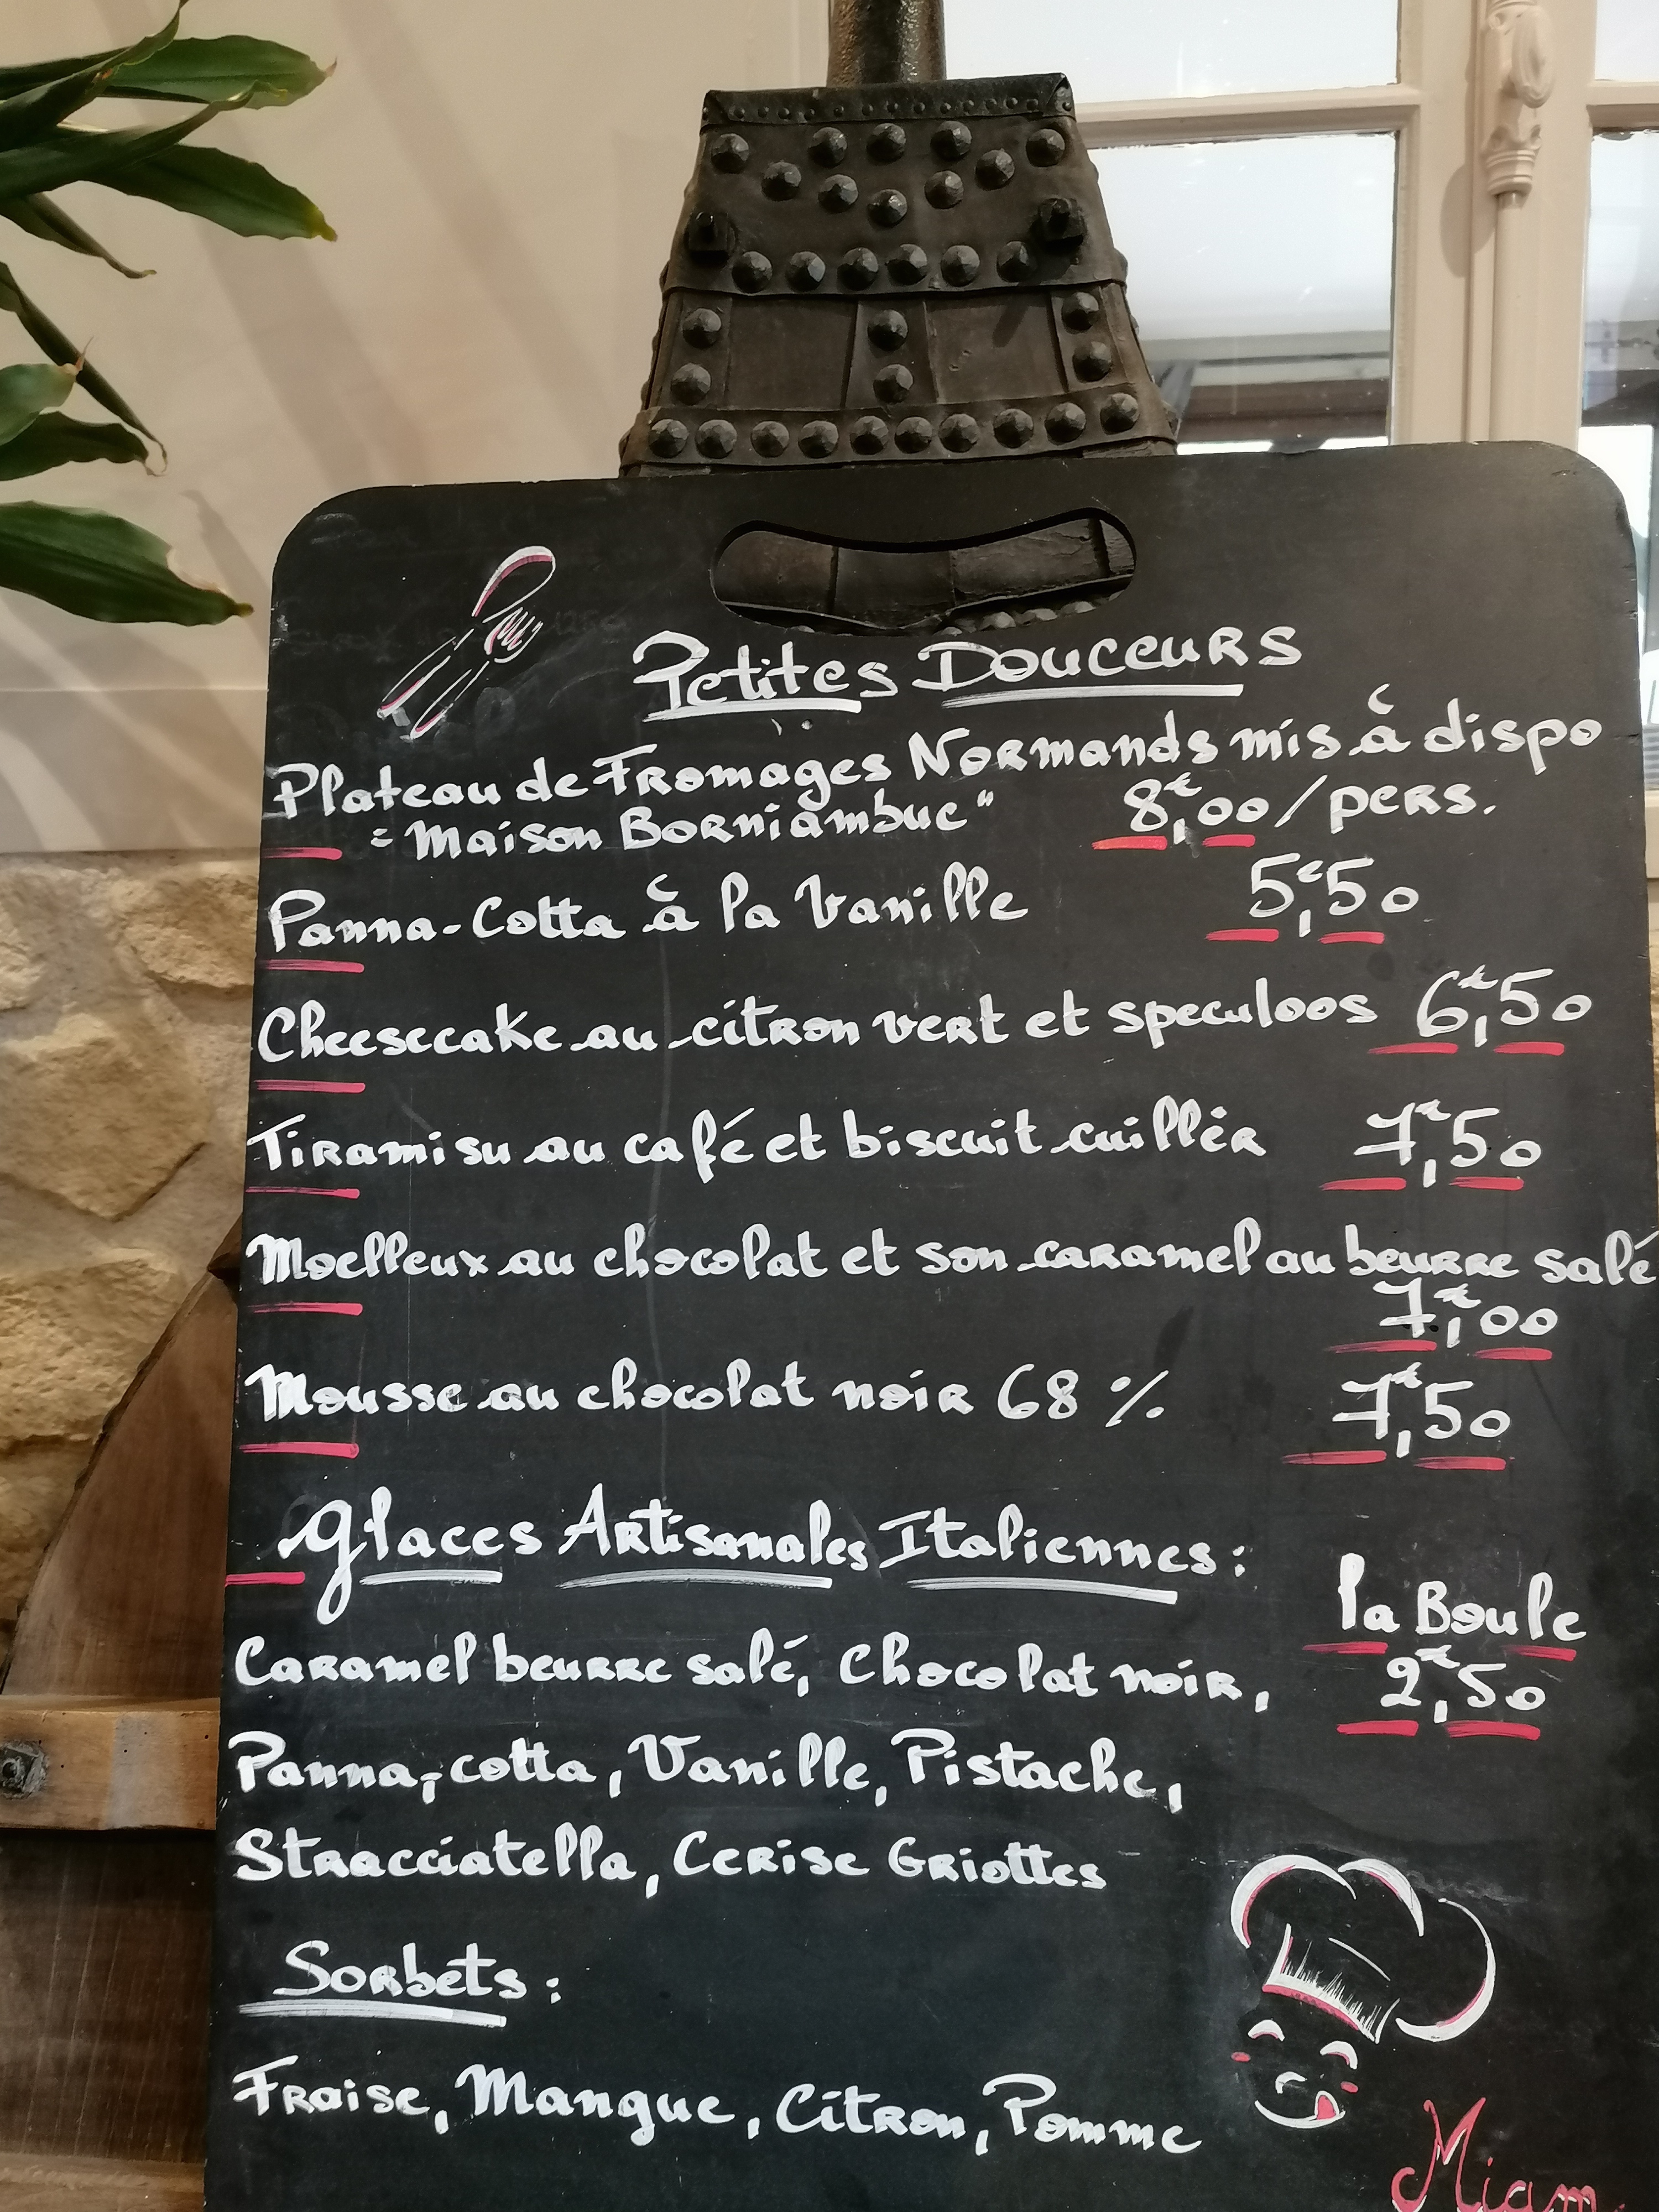 Petites Douceurs
Plateau de Fromages Normands mis à dispo
"Maison Borniambuc" 8€,00/pers.
Panna-Cotta à la Vanille 5€,50
Cheesecake au citron vert et speculoos 6€,50
Tiramisu au café et biscuit cuillèr 7€,50
Moelleux au chocolat et son caramel au beurre salé
7€,00
Mousse au chocolat noir 68 % 7€,50
Glaces Artisanales Italiennes :
la Boule
Caramel beurre salé, Chocolat noir, 2€,50
Panna-cotta, Vanille, Pistache,
Stracciatella, Cerise Griottes
Sorbets :
Fraise, Mangue, Citron, Pomme
Miam